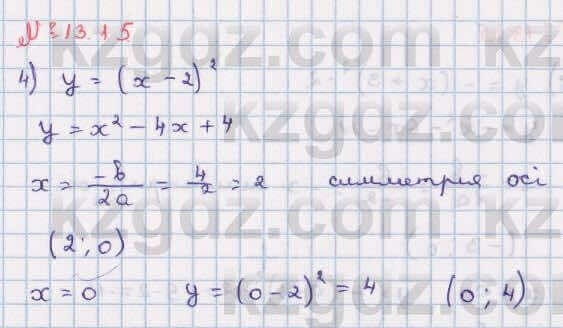 № 13.15
4) y = (x - 2)²
y = x² - 4x + 4
x = -b/2a = 4/2 = 2 симметрия осі
(2; 0)
x = 0 y = (0 - 2)² = 4 (0; 4)
kzgdz.com
kzgdz.com
kzgdz.com
kzgdz.com
kzgdz.com
kzgdz.com